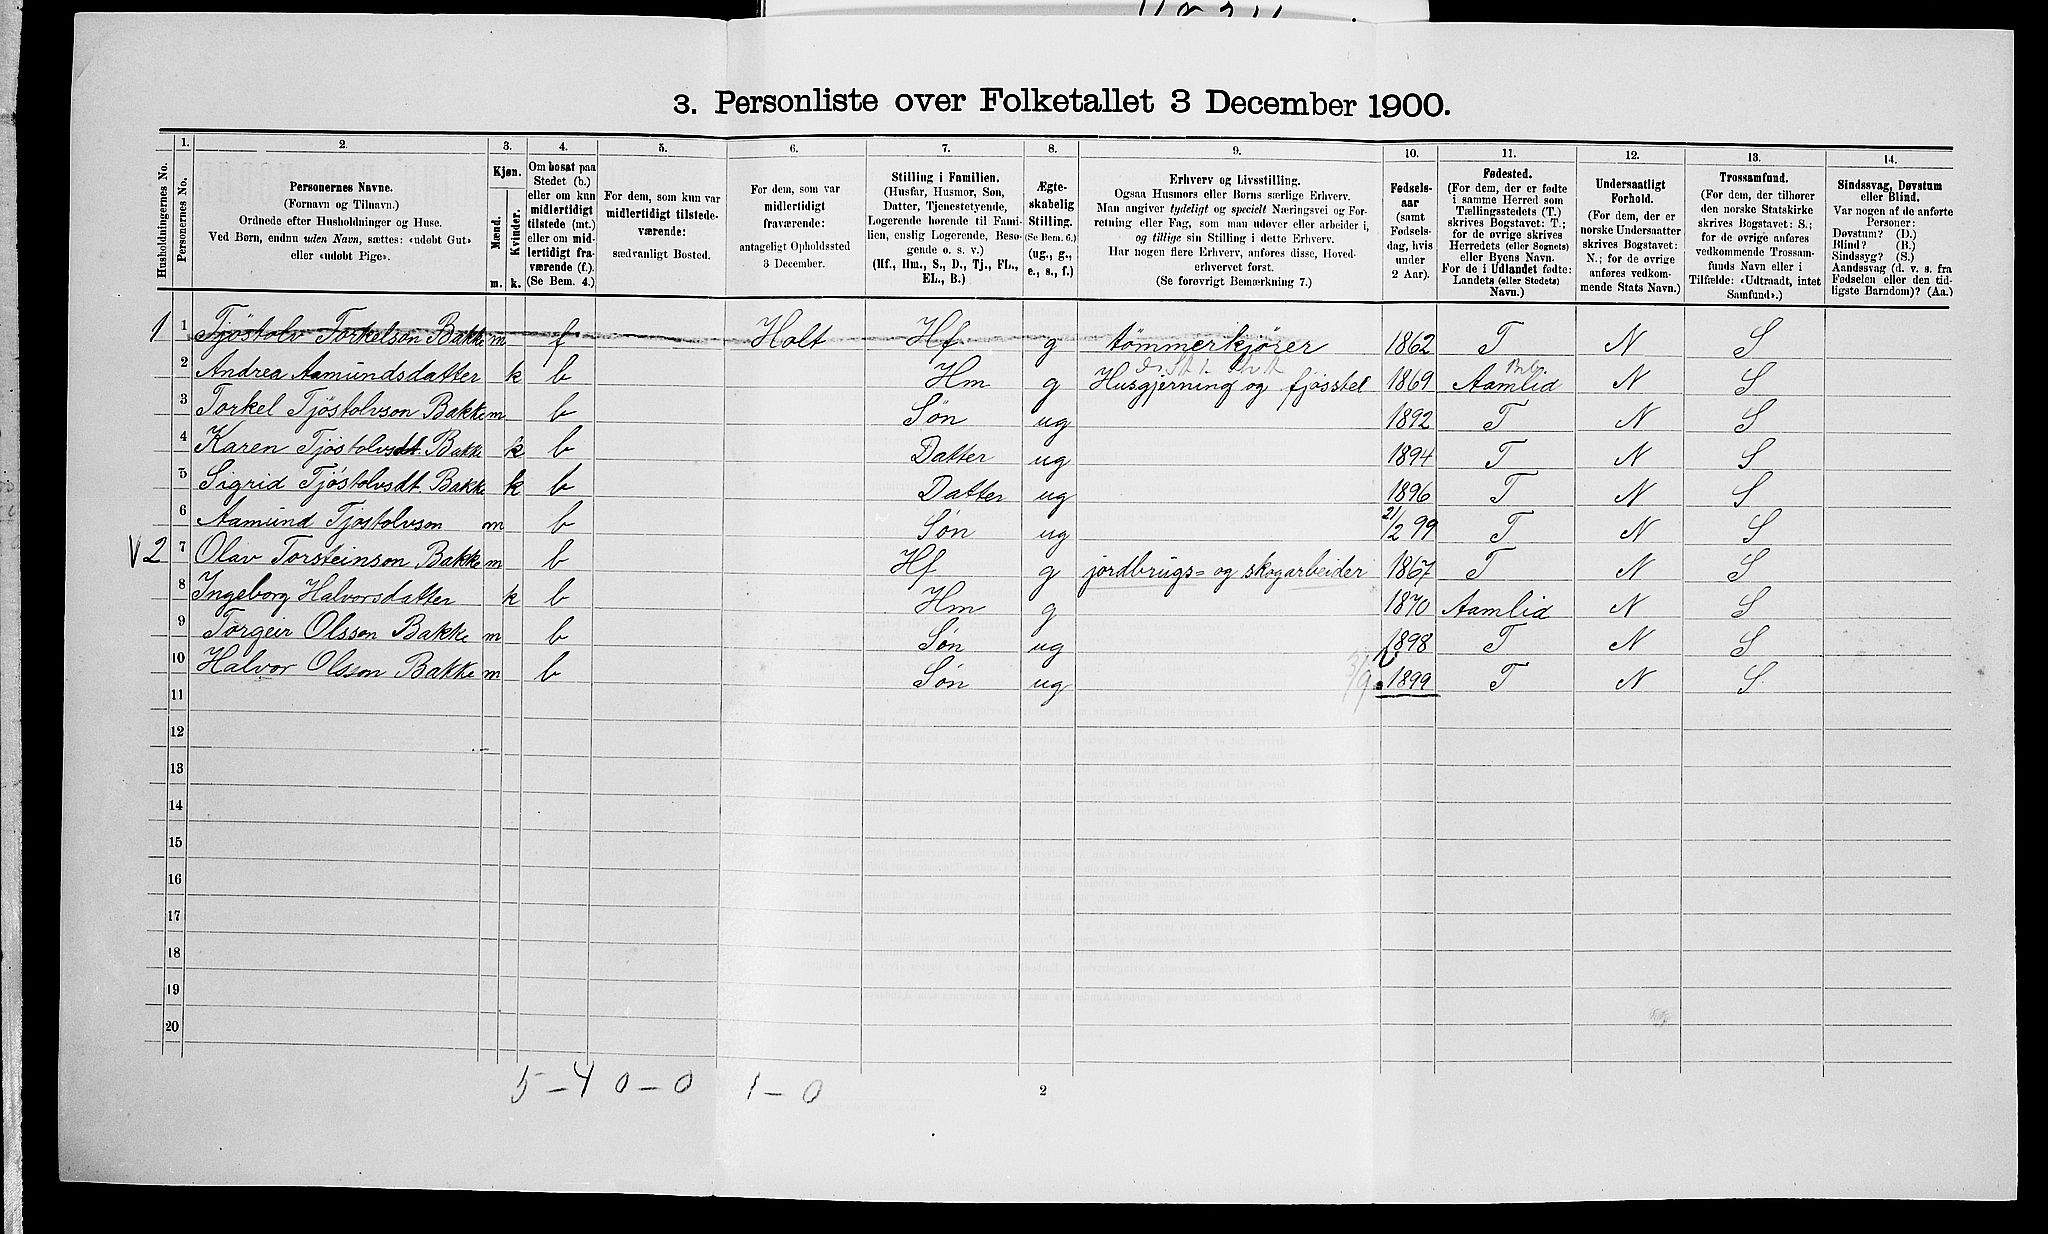 3. Personliste over Folketallet 3 December 1900.
1. 2. 3. 4. 5. 6. 7. 8. 9. 10. 11. 12. 13. 14.
Husholdningernes No.
Personernes No.
Personernes Navne.
(Fornavn og Tilnavn.)
Ordnede efter Husholdninger og Huse.
Ved Børn, endnu uden Navn, sættes: «udøbt Gut»
eller «udøbt Pige».
Kjøn.
Mænd.
Kvinder.
m. k.
Om bosat paa
Stedet (b.)
eller om kun
midlertidigt
tilstede (mt.)
eller om mid-
lertidigt fra-
værende (f.).
(Se Bem. 4.)
For dem, som kun var
midlertidigt tilstede-
værende:
sædvanligt Bosted.
For dem, som var
midlertidigt
fraværende:
antageligt Opholdssted
3 December.
Stilling i Familien.
(Husfar, Husmor, Søn,
Datter, Tjenestetyende,
Logerende hørende til Fami-
lien, enslig Logerende, Besø-
gende o. s. v.)
(Hf., Hm., S., D., Tj., FL.,
EL., B.)
Ægte-
skabelig
Stilling.
(Se Bem. 6.)
(ug., g.,
e., s., f.)
Erhverv og Livsstilling.
Ogsaa Husmors eller Børns særlige Erhverv.
Man angiver tydeligt og specielt Næringsvei og For-
retning eller Fag, som man udøver eller arbeider i,
og tillige sin Stilling i dette Erhverv.
Har nogen flere Erhverv, anføres disse, Hoved-
erhvervet først.
(Se forøvrigt Bemærkning 7.)
Fødsels-
aar
(samt
Fødsels-
dag, hvis
under
2 Aar).
Fødested.
(For dem, der er fødte
i samme Herred som
Tællingsstedets (T.)
skrives Bogstavet: T.;
for de øvrige skrives
Herredets (eller Sognets)
eller Byens Navn.
For de i Udlandet fødte:
Landets (eller Stedets)
Navn.)
Undersaatligt
Forhold.
(For dem, der er
norske Undersaatter
skrives Bogstavet:
N.; for de øvrige
anføres vedkom-
mende Stats Navn.)
Trossamfund.
(For dem, der tilhører
den norske Statskirke
skrives Bogstavet: S.;
for de øvrige anføres
vedkommende Trossam-
funds Navn eller i
Tilfælde: «Udtraadt, intet
Samfund».)
Sindssvag, Døvstum
eller Blind.
Var nogen af de anførte
Personer:
Døvstum? (D.)
Blind? (B.)
Sindssyg? (S.)
Aandssvag (d. v. s. fra
Fødselen eller den tid-
ligste Barndom)? (Aa.)
1 1 Tjöstolv Torkelson Bakke m f Holt Hf g tömmerkjörer 1862 T N S
2 Andrea Aamundsdatter k b Hm g Husgjerning og fjösstel 1869 Aamlid N S
3 Torkel Tjöstolvson Bakke m b Sön ug 1892 T N S
4 Karen Tjöstolvsdt. Bakke k b Datter ug 1894 T N S
5 Sigrid Tjöstolvsdt. Bakke k b Datter ug 1896 T N S
6 Aamund Tjöstolvson m b Sön ug 21/2 99 T N S
V 2 7 Olav Torsteinson Bakke m b Hf g jordbrugs= og skogarbeider 1867 T N S
8 Ingeborg Halvorsdatter k b Hm g 1870 Aamlid N S
9 Torgeir Olsson Bakke m b Sön ug 1898 T N S
10 Halvor Olsson Bakke m b Sön ug 3/9 1899 T N S
11
12
13
14
15
16
17
18
19
20
5 – 4 0 – 0 1 – 0
2